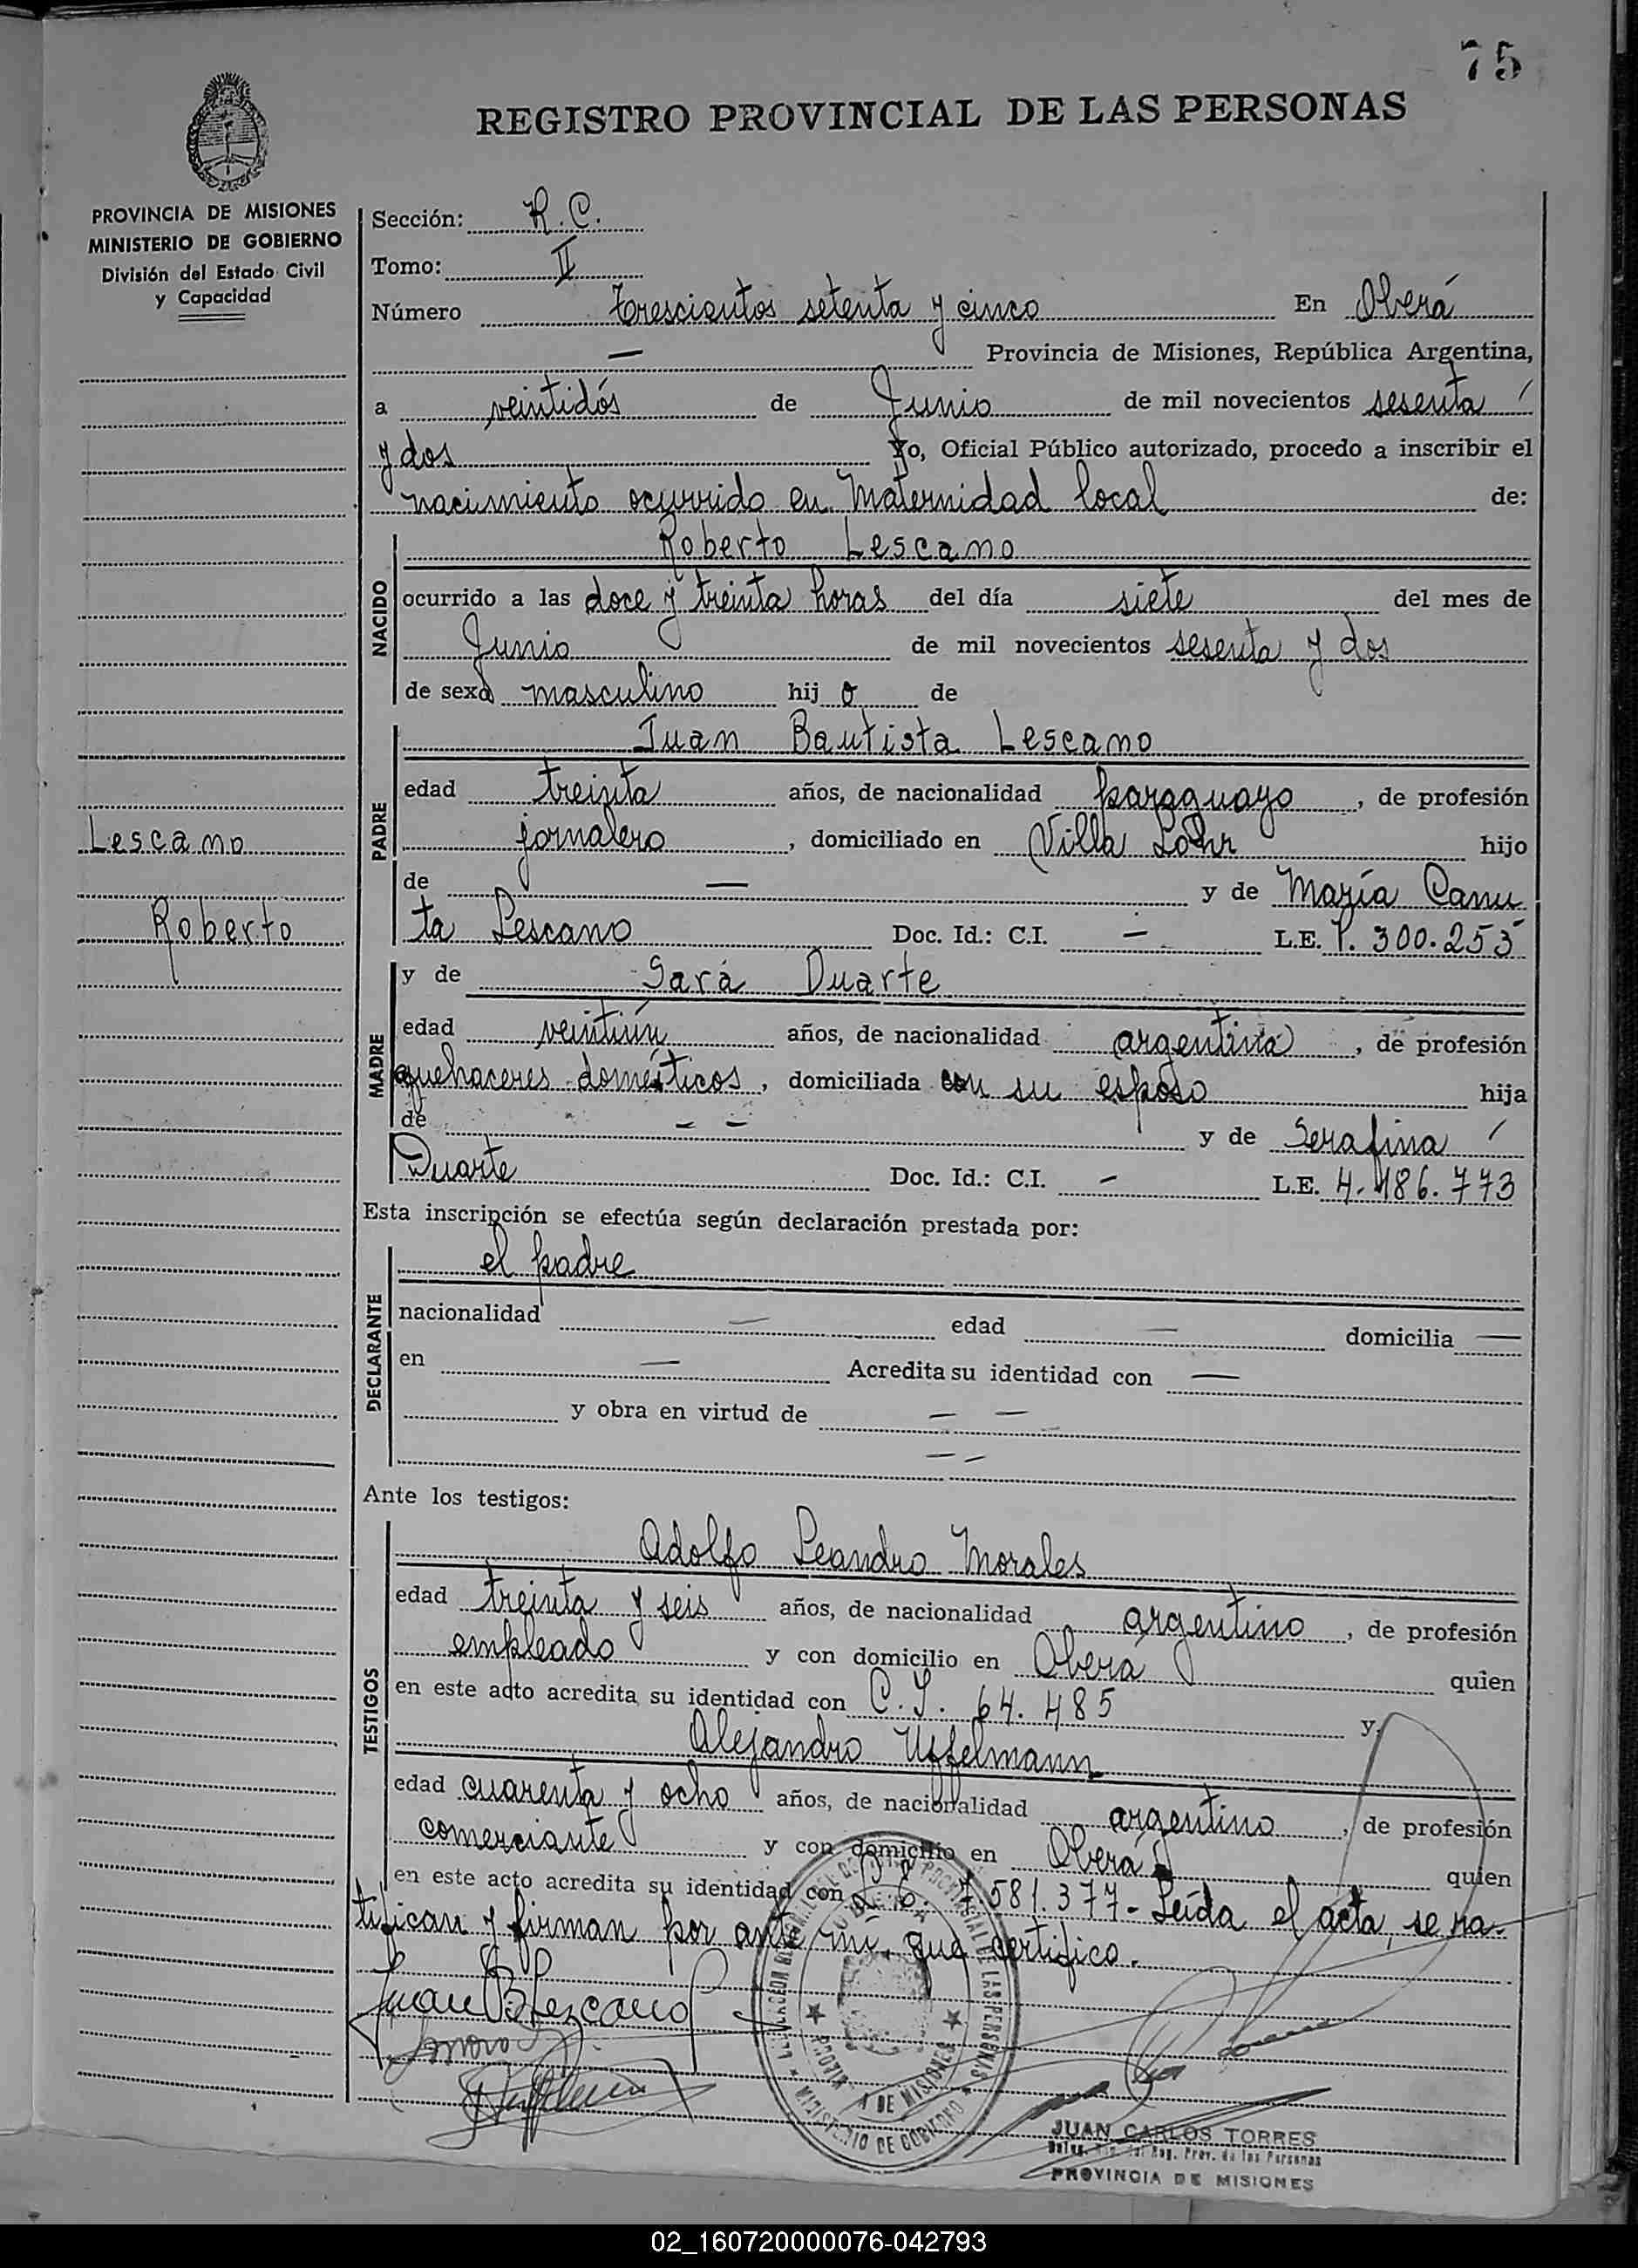 75
REGISTRO PROVINCIAL DE LAS PERSONAS
PROVINCIA DE MISIONES
MINISTERIO DE GOBIERNO
División del Estado Civil
y Capacidad
Lescano
Roberto
Sección: R.C.
Tomo: II
Número Trescientos setenta y cinco En Oberá
— Provincia de Misiones, República Argentina,
a veintidós de Junio de mil novecientos sesenta
y dos Yo, Oficial Público autorizado, procedo a inscribir el
nacimiento ocurrido en Maternidad local de:
NACIDO
Roberto Lescano
ocurrido a las doce y treinta horas del día siete del mes de
Junio de mil novecientos sesenta y dos
de sexo masculino hijo de
PADRE
Juan Bautista Lescano
edad treinta años, de nacionalidad paraguayo, de profesión
jornalero, domiciliado en Villa Lohr hijo
de — y de María Canu
ta Lescano Doc. Id.: C.I. — L.E. P. 300.253
MADRE
y de Sara Duarte
edad veintiún años, de nacionalidad argentina, de profesión
quehaceres domésticos, domiciliada con su esposo hija
de — — y de Serafina
Duarte Doc. Id.: C.I. — L.E. 4.186.773
Esta inscripción se efectúa según declaración prestada por:
DECLARANTE
el padre
nacionalidad — edad — domicilia —
en — Acredita su identidad con —
y obra en virtud de — —
— —
Ante los testigos:
TESTIGOS
Adolfo Leandro Morales
edad treinta y seis años, de nacionalidad argentino, de profesión
empleado y con domicilio en Oberá quien
en este acto acredita su identidad con C.I. 64.485 y
Alejandro Uffelmann
edad cuarenta y ocho años, de nacionalidad argentino, de profesión
comerciante y con domicilio en Oberá quien
en este acto acredita su identidad con 581.377.- Leída el acta, se ra-
tifican y firman por ante mí, que certifico.
Juan B Lezcano
PROVINCIAL DE LAS PERSONAS
DE MISIONES
MINISTERIO DE GOBIERNO
JUAN CARLOS TORRES
Reg. Prov. de las Personas
PROVINCIA DE MISIONES
02_160720000076-042793